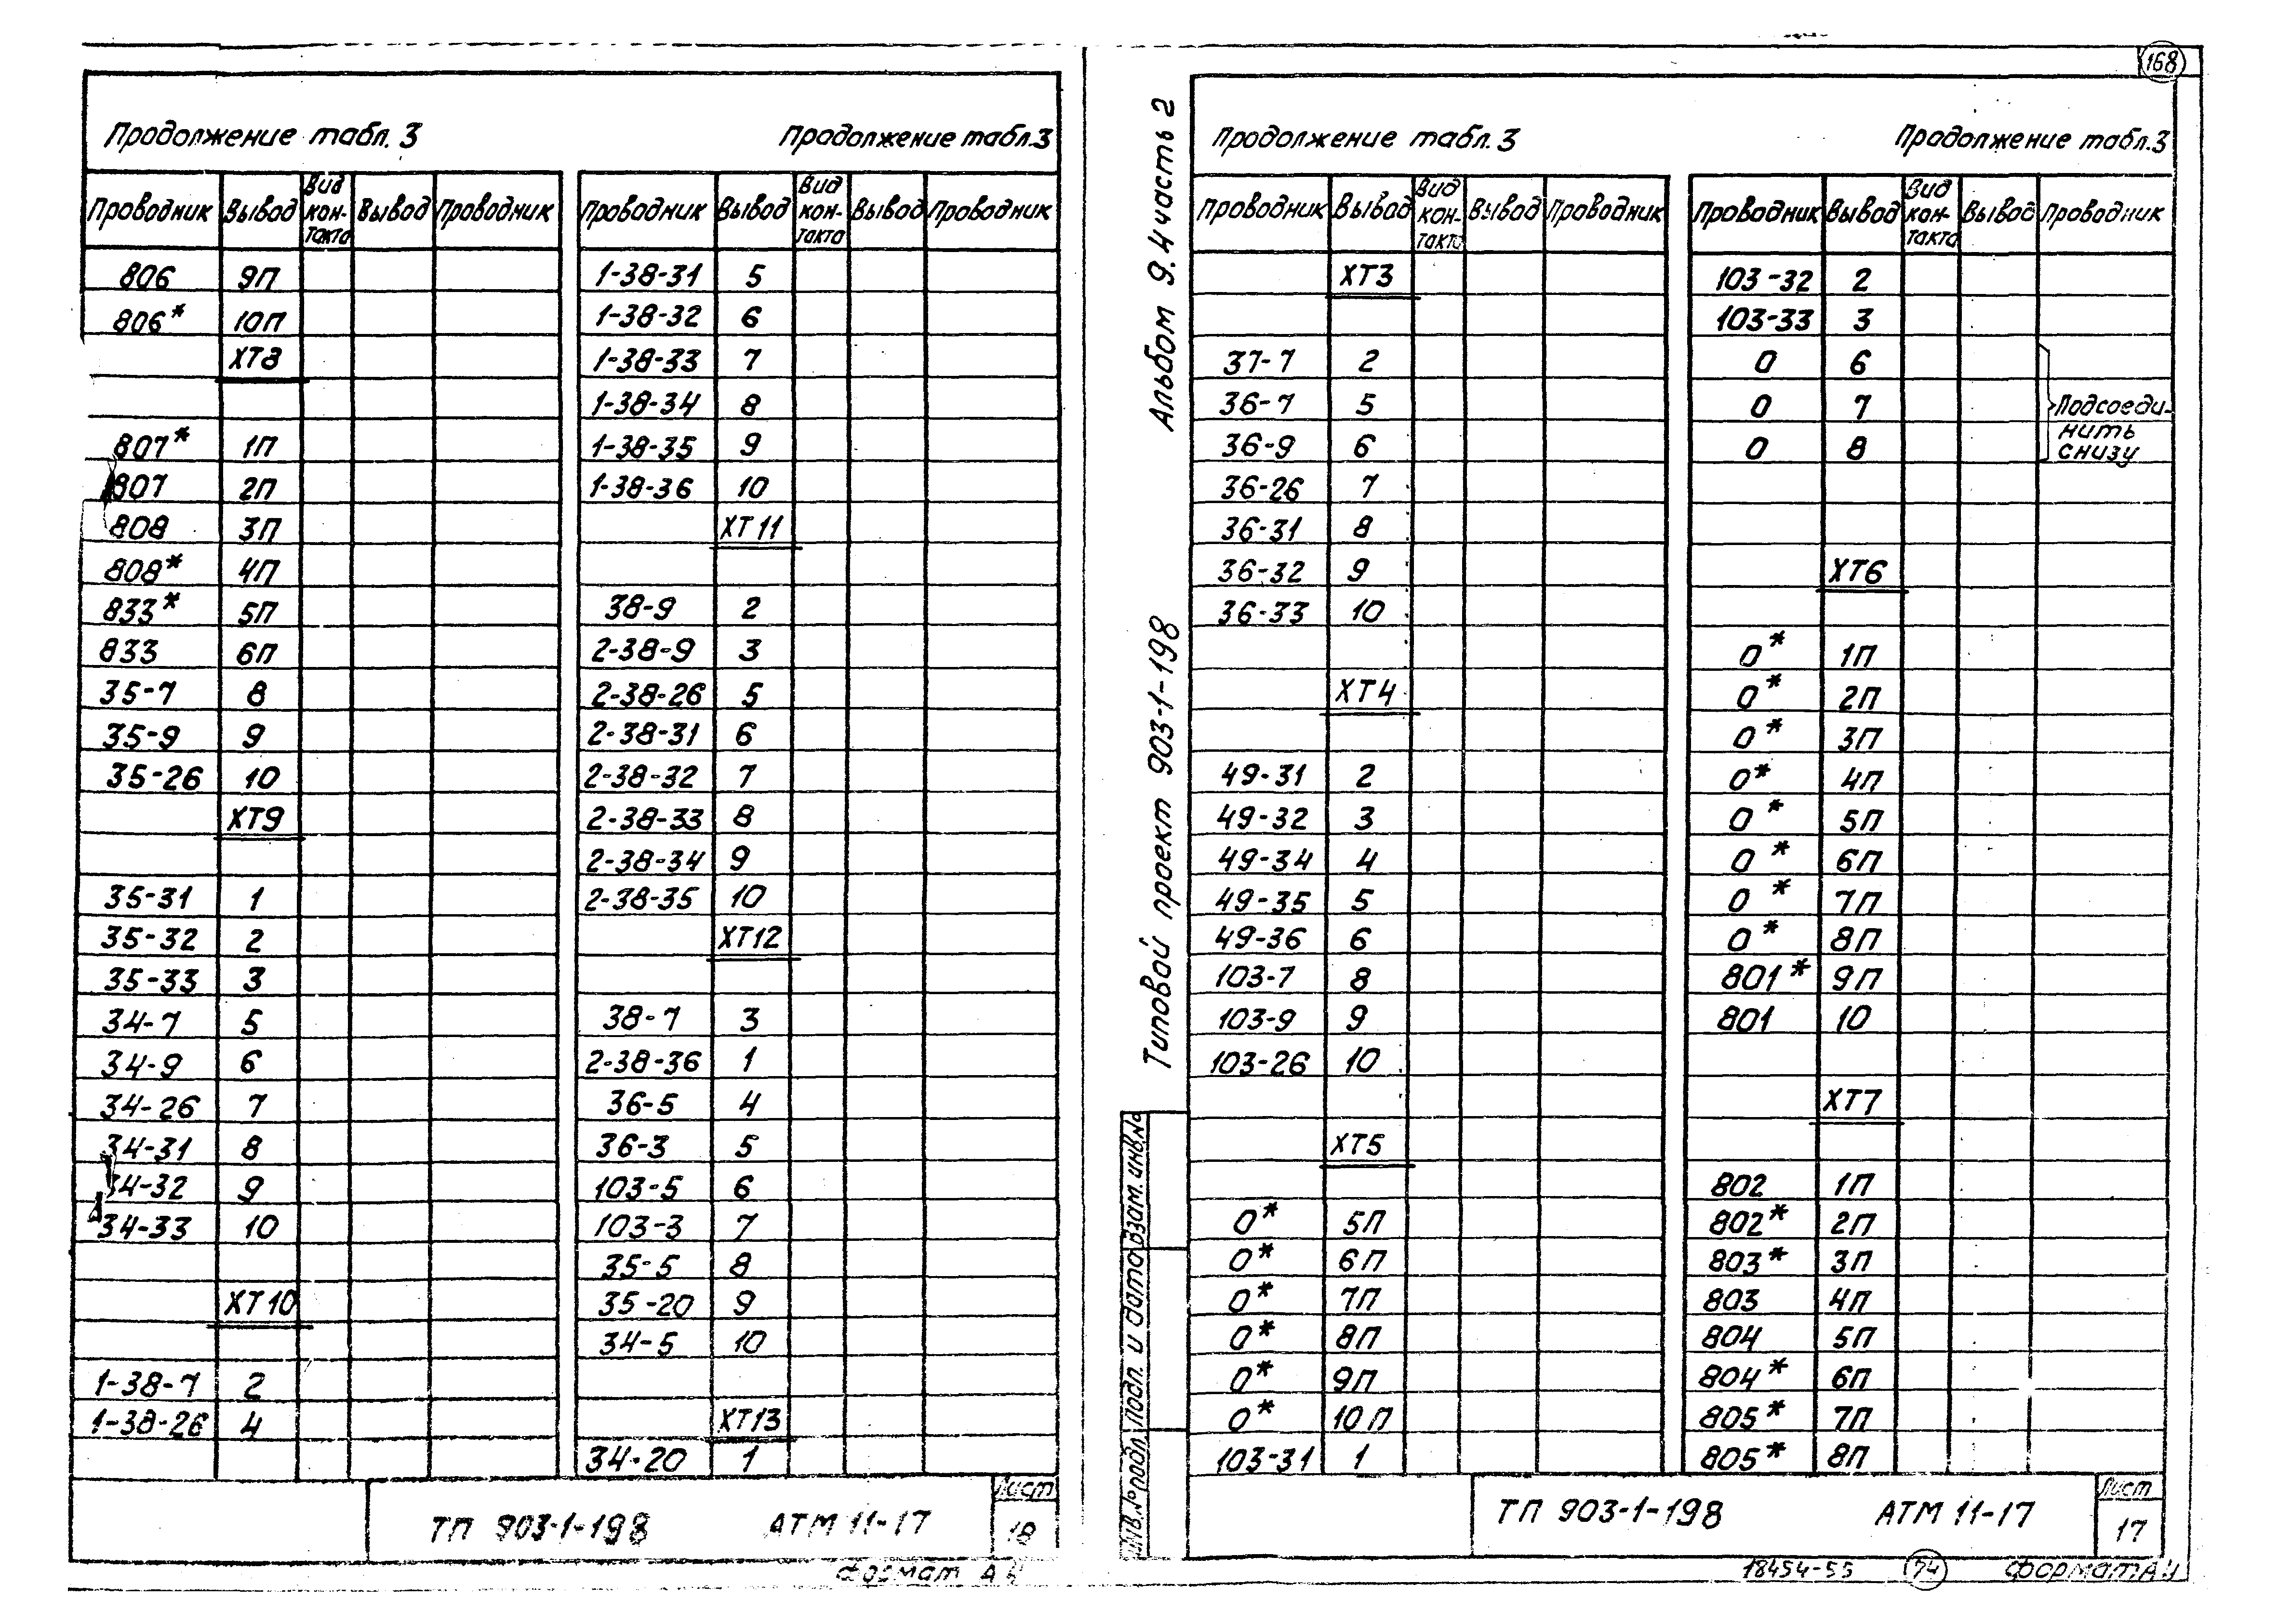 168
Продолжение табл. 3
Продолжение табл.3
Проводник Вывод Вид кон-такта Вывод Проводник
806 9П
806* 10П
ХТ8
807* 1П
807 2П
808 3П
808* 4П
833* 5П
833 6П
35-7 8
35-9 9
35-26 10
ХТ9
35-31 1
35-32 2
35-33 3
34-7 5
34-9 6
34-26 7
34-31 8
34-32 9
34-33 10
ХТ10
1-38-7 2
1-38-26 4
Проводник Вывод Вид кон-такта Вывод Проводник
1-38-31 5
1-38-32 6
1-38-33 7
1-38-34 8
1-38-35 9
1-38-36 10
ХТ11
38-9 2
2-38-9 3
2-38-26 5
2-38-31 6
2-38-32 7
2-38-33 8
2-38-34 9
2-38-35 10
ХТ12
38-7 3
2-38-36 1
36-5 4
36-3 5
103-5 6
103-3 7
35-5 8
35-20 9
34-5 10
ХТ13
34-20 1
ТП 903-1-198 АТМ 11-17
Лист
18
Формат А4
Альбом 9.4 часть 2
Типовой проект 903-1-198
Взам. инв.№
Подп. и дата
Инв.№ подл.
Продолжение табл. 3
Продолжение табл.3
Проводник Вывод Вид кон-такта Вывод Проводник
ХТ3
37-7 2
36-7 5
36-9 6
36-26 7
36-31 8
36-32 9
36-33 10
ХТ4
49-31 2
49-32 3
49-34 4
49-35 5
49-36 6
103-7 8
103-9 9
103-26 10
ХТ5
0* 5П
0* 6П
0* 7П
0* 8П
0* 9П
0* 10П
103-31 1
Проводник Вывод Вид кон-такта Вывод Проводник
103-32 2
103-33 3
0 6
0 7 Подсоеди-
нить
0 8 снизу
ХТ6
0* 1П
0* 2П
0* 3П
0* 4П
0* 5П
0* 6П
0* 7П
0* 8П
801* 9П
801 10
ХТ7
802 1П
802* 2П
803* 3П
803 4П
804 5П
804* 6П
805* 7П
805* 8П
ТП 903-1-198 АТМ 11-17
Лист
17
18454-55 74 Формат А4